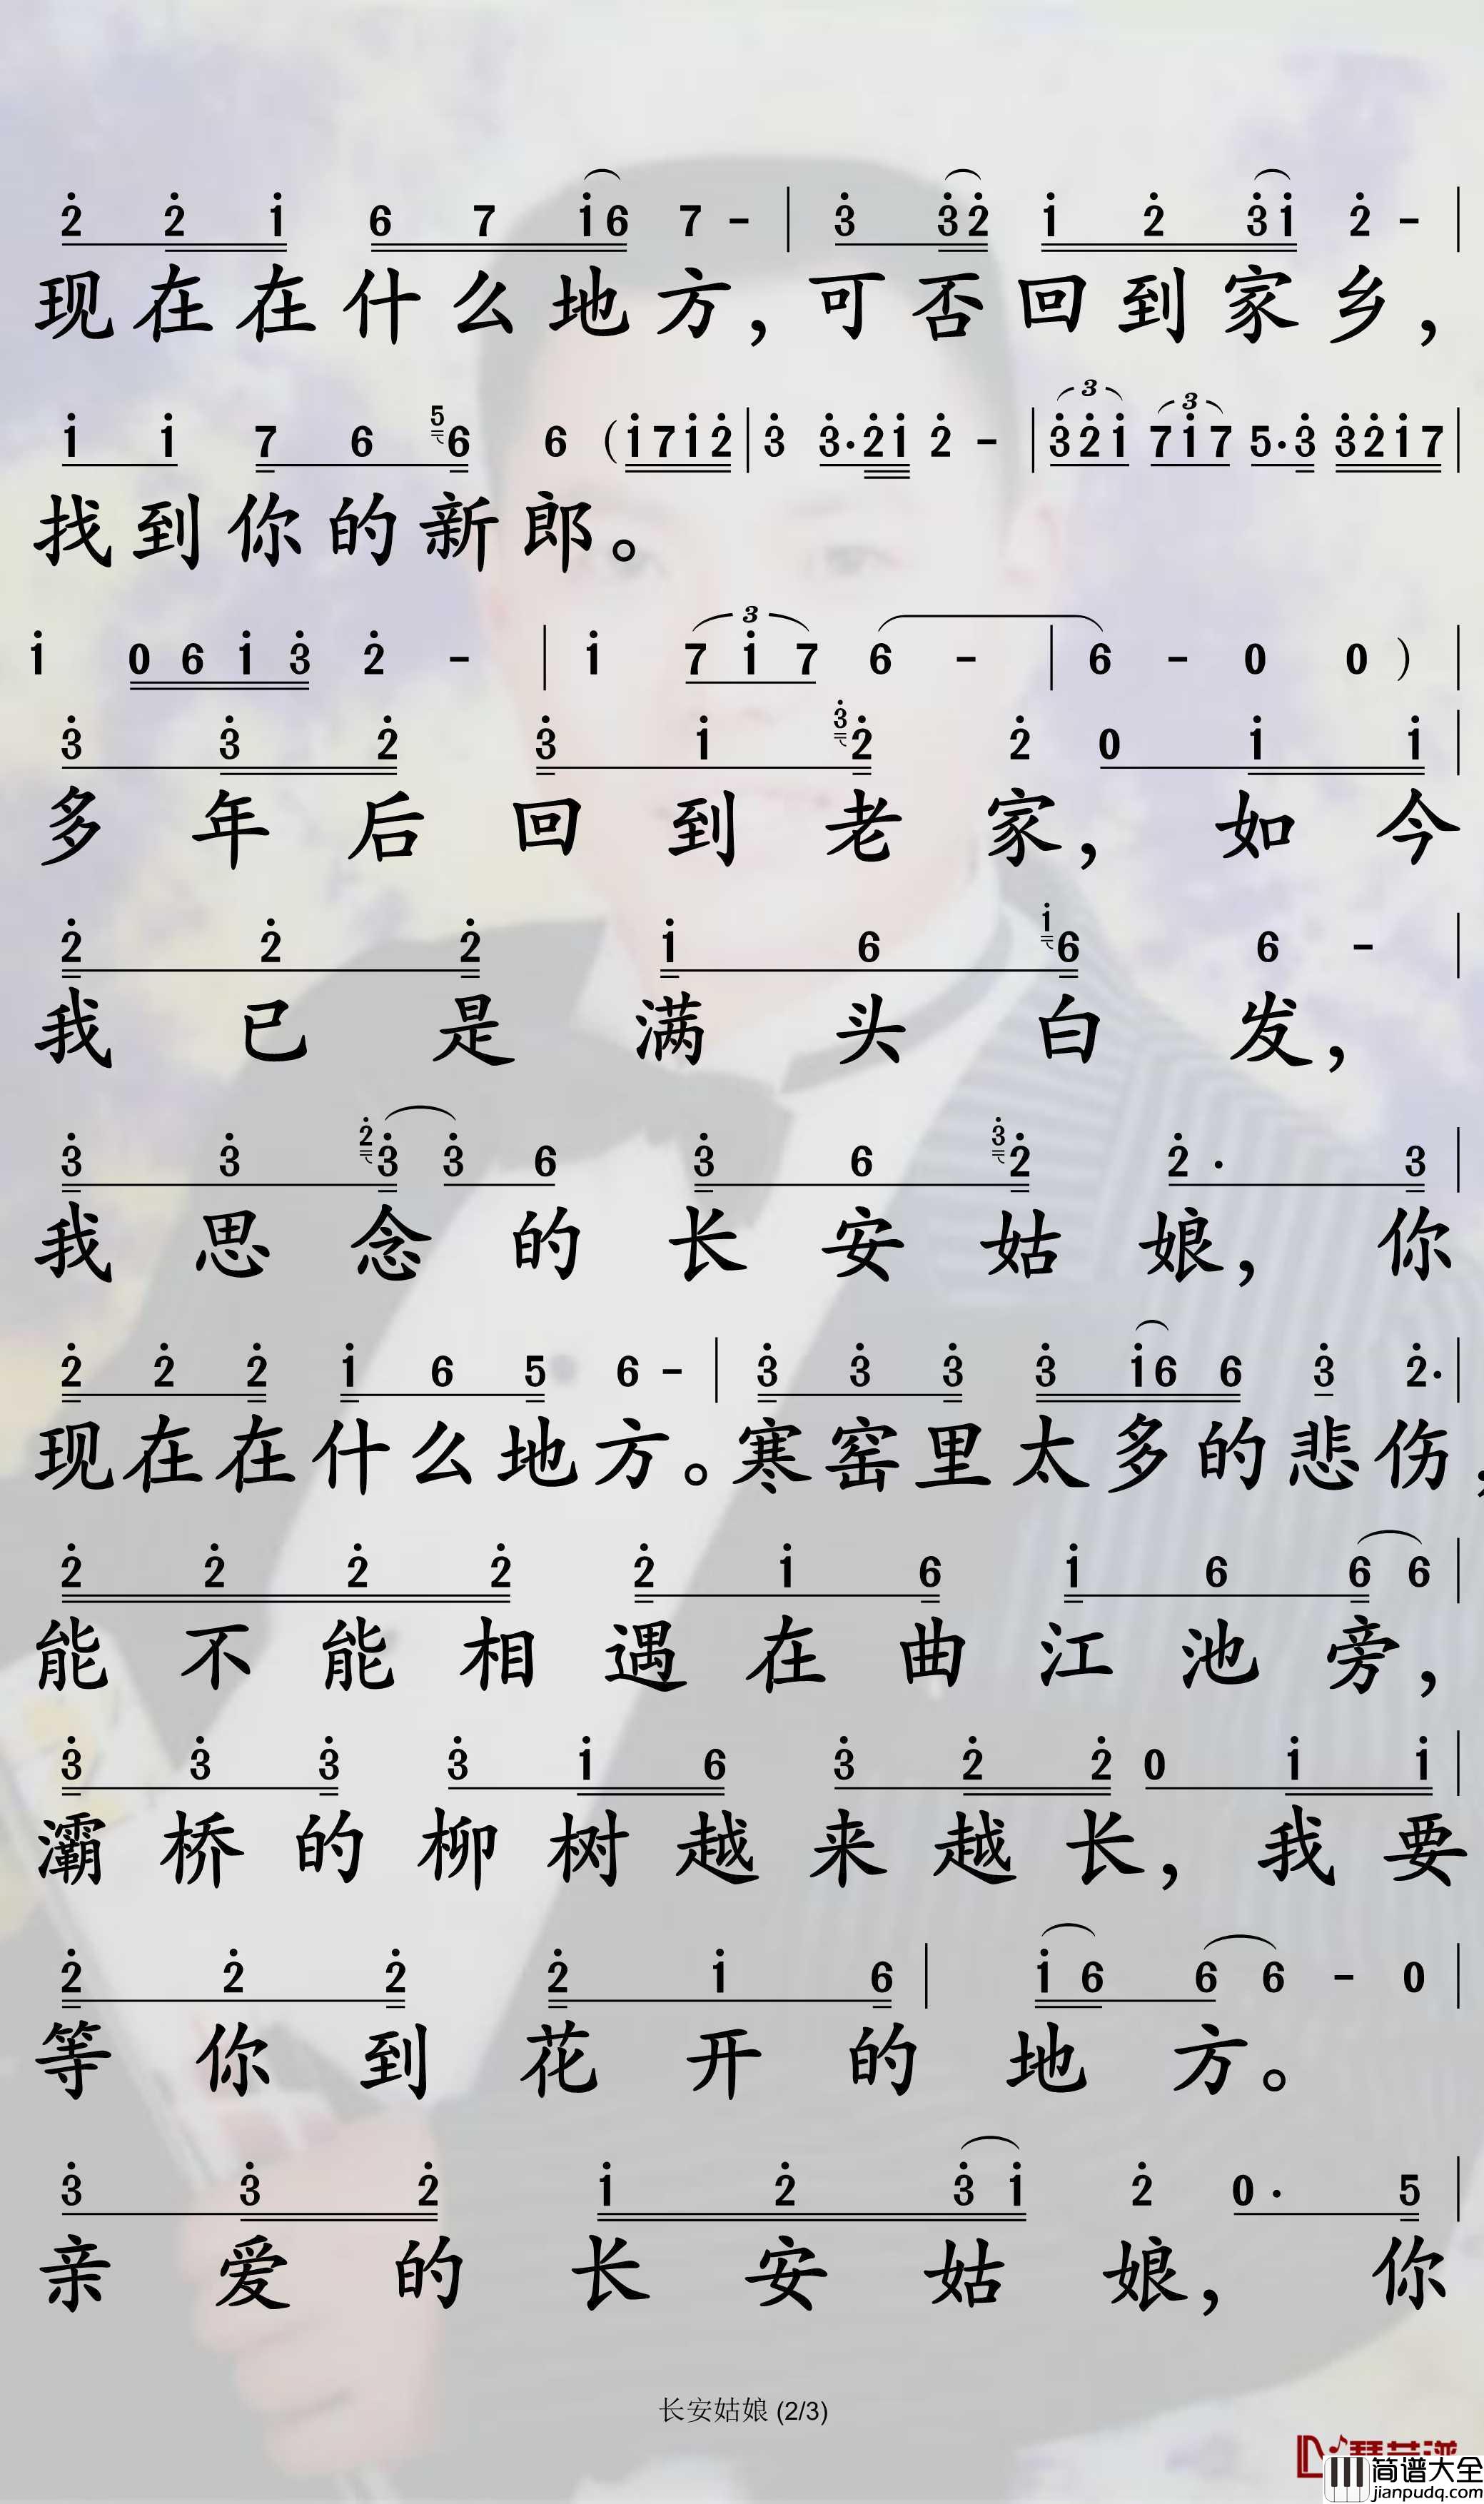 2 2 1 6 7 1 6 7 - | 3 3 2 1 2 3 1 2 - |
现在在什么地方，可否回到家乡，
1 1 7 6 5 6 6 (1 7 1 2 | 3 3·2 1 2 - | 3 3 2 1 3 7 1 7 5·3 3 2 1 7 |
找到你的新郎。
1 0 6 1 3 2 - | 1 3 7 1 7 6 - | 6 - 0 0 ) |
3 3 2 3 1 3 2 2 0 1 1 |
多年后回到老家，如今
2 2 2 1 6 1 6 6 - |
我已是满头白发，
3 3 2 3 3 6 3 6 3 2 2· 3 |
我思念的长安姑娘，你
2 2 2 1 6 5 6 - | 3 3 3 3 1 6 6 3 2· |
现在在什么地方。寒窑里太多的悲伤，
2 2 2 2 2 1 6 1 6 6 6 |
能不能相遇在曲江池旁，
3 3 3 3 1 6 3 2 2 0 1 1 |
灞桥的柳树越来越长，我要
2 2 2 2 1 6 | 1 6 6 6 - 0 |
等你到花开的地方。
3 3 2 1 2 3 1 2 0· 5 |
亲爱的长安姑娘，你
长安姑娘 (2/3)
简谱大全
jianpudq.com